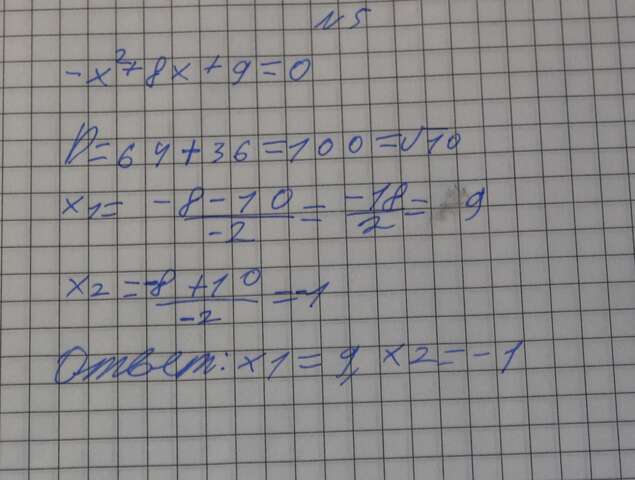 №5
-x²+8x+9=0
D=64+36=100=√10
x1= -8-10/-2 = -18/2 = 9
x2 = -8+10/-2 = -1
Ответ: x1=9, x2=-1